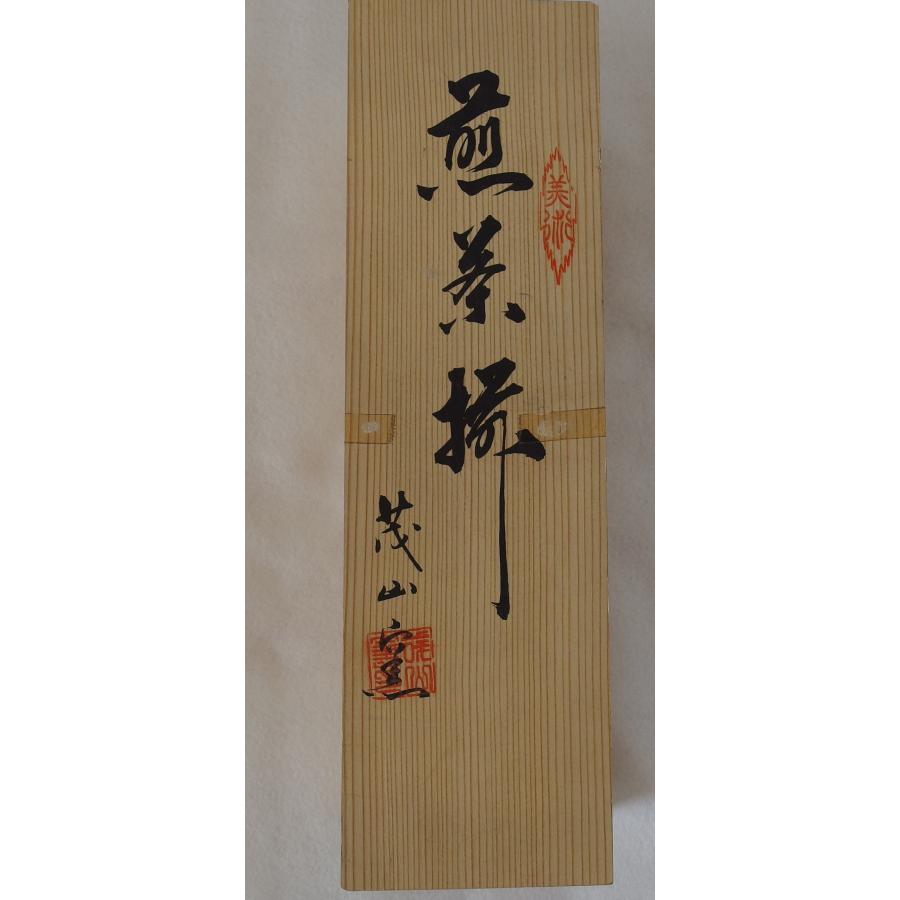 美術
煎茶揃
茂山窯